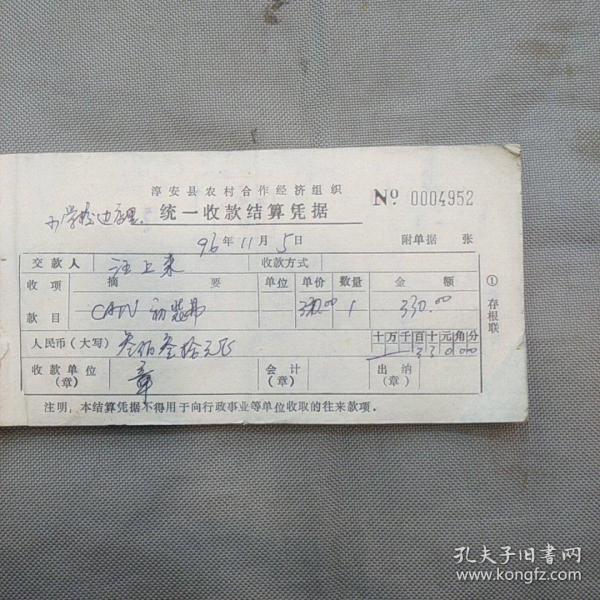 淳安县农村合作经济组织
统一收款结算凭据
№ 0004952
96年11月5日
附单据 张
交款人 汪上来 收款方式
收项 摘要 单位 单价 数量 金额
款目 CATV 初装费 330.00 1 330.00
人民币(大写) 叁佰叁拾元正 十万千百十元角分
3 3 0 0 0
收款单位(章) 章 会计(章) 出纳(章)
① 存根联
注明,本结算凭据不得用于向行政事业等单位收取的往来款项。
孔夫子旧书网
www.kongfz.com